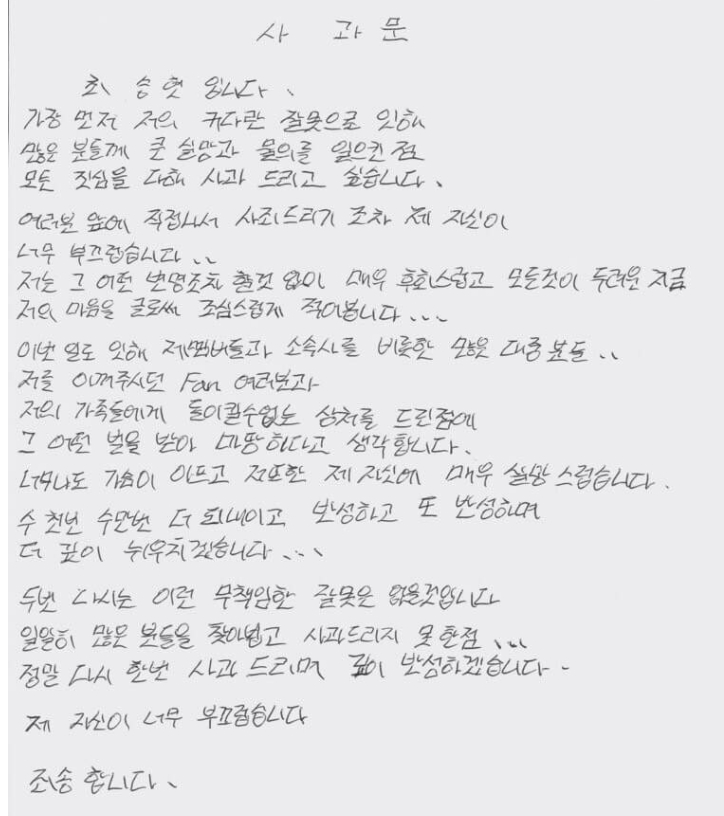 사 과 문
최 승 현 입니다.
가장 먼저 저의 커다란 잘못으로 인해
많은 분들께 큰 실망과 물의를 일으킨 점
모든 진심을 다해 사과 드리고 싶습니다.
여러분 앞에 직접나서 사죄드리기 조차 제 자신이
너무 부끄럽습니다..
저는 그 어떤 변명조차 할것 없이 매우 후회스럽고 모든것이 두려운 지금
저의 마음을 글로써 조심스럽게 적어봅니다...
이번 일로 인해 제멤버들과 소속사를 비롯한 많은 대중 분들..
저를 아껴주시던 Fan 여러분과
저의 가족들에게 돌이킬수없는 상처를 드린점에
그 어떤 벌을 받아 마땅하다고 생각합니다.
너무나도 가슴이 아프고 저또한 제 자신에 매우 실망 스럽습니다.
수 천번 수만번 더 되내이고 반성하고 또 반성하며
더 깊이 뉘우치겠습니다...
두번 다시는 이런 무책임한 잘못은 없을것입니다
일일히 많은 분들을 찾아뵙고 사과드리지 못 한점...
정말 다시 한번 사과 드리며 깊이 반성하겠습니다.
제 자신이 너무 부끄럽습니다
죄송 합니다.